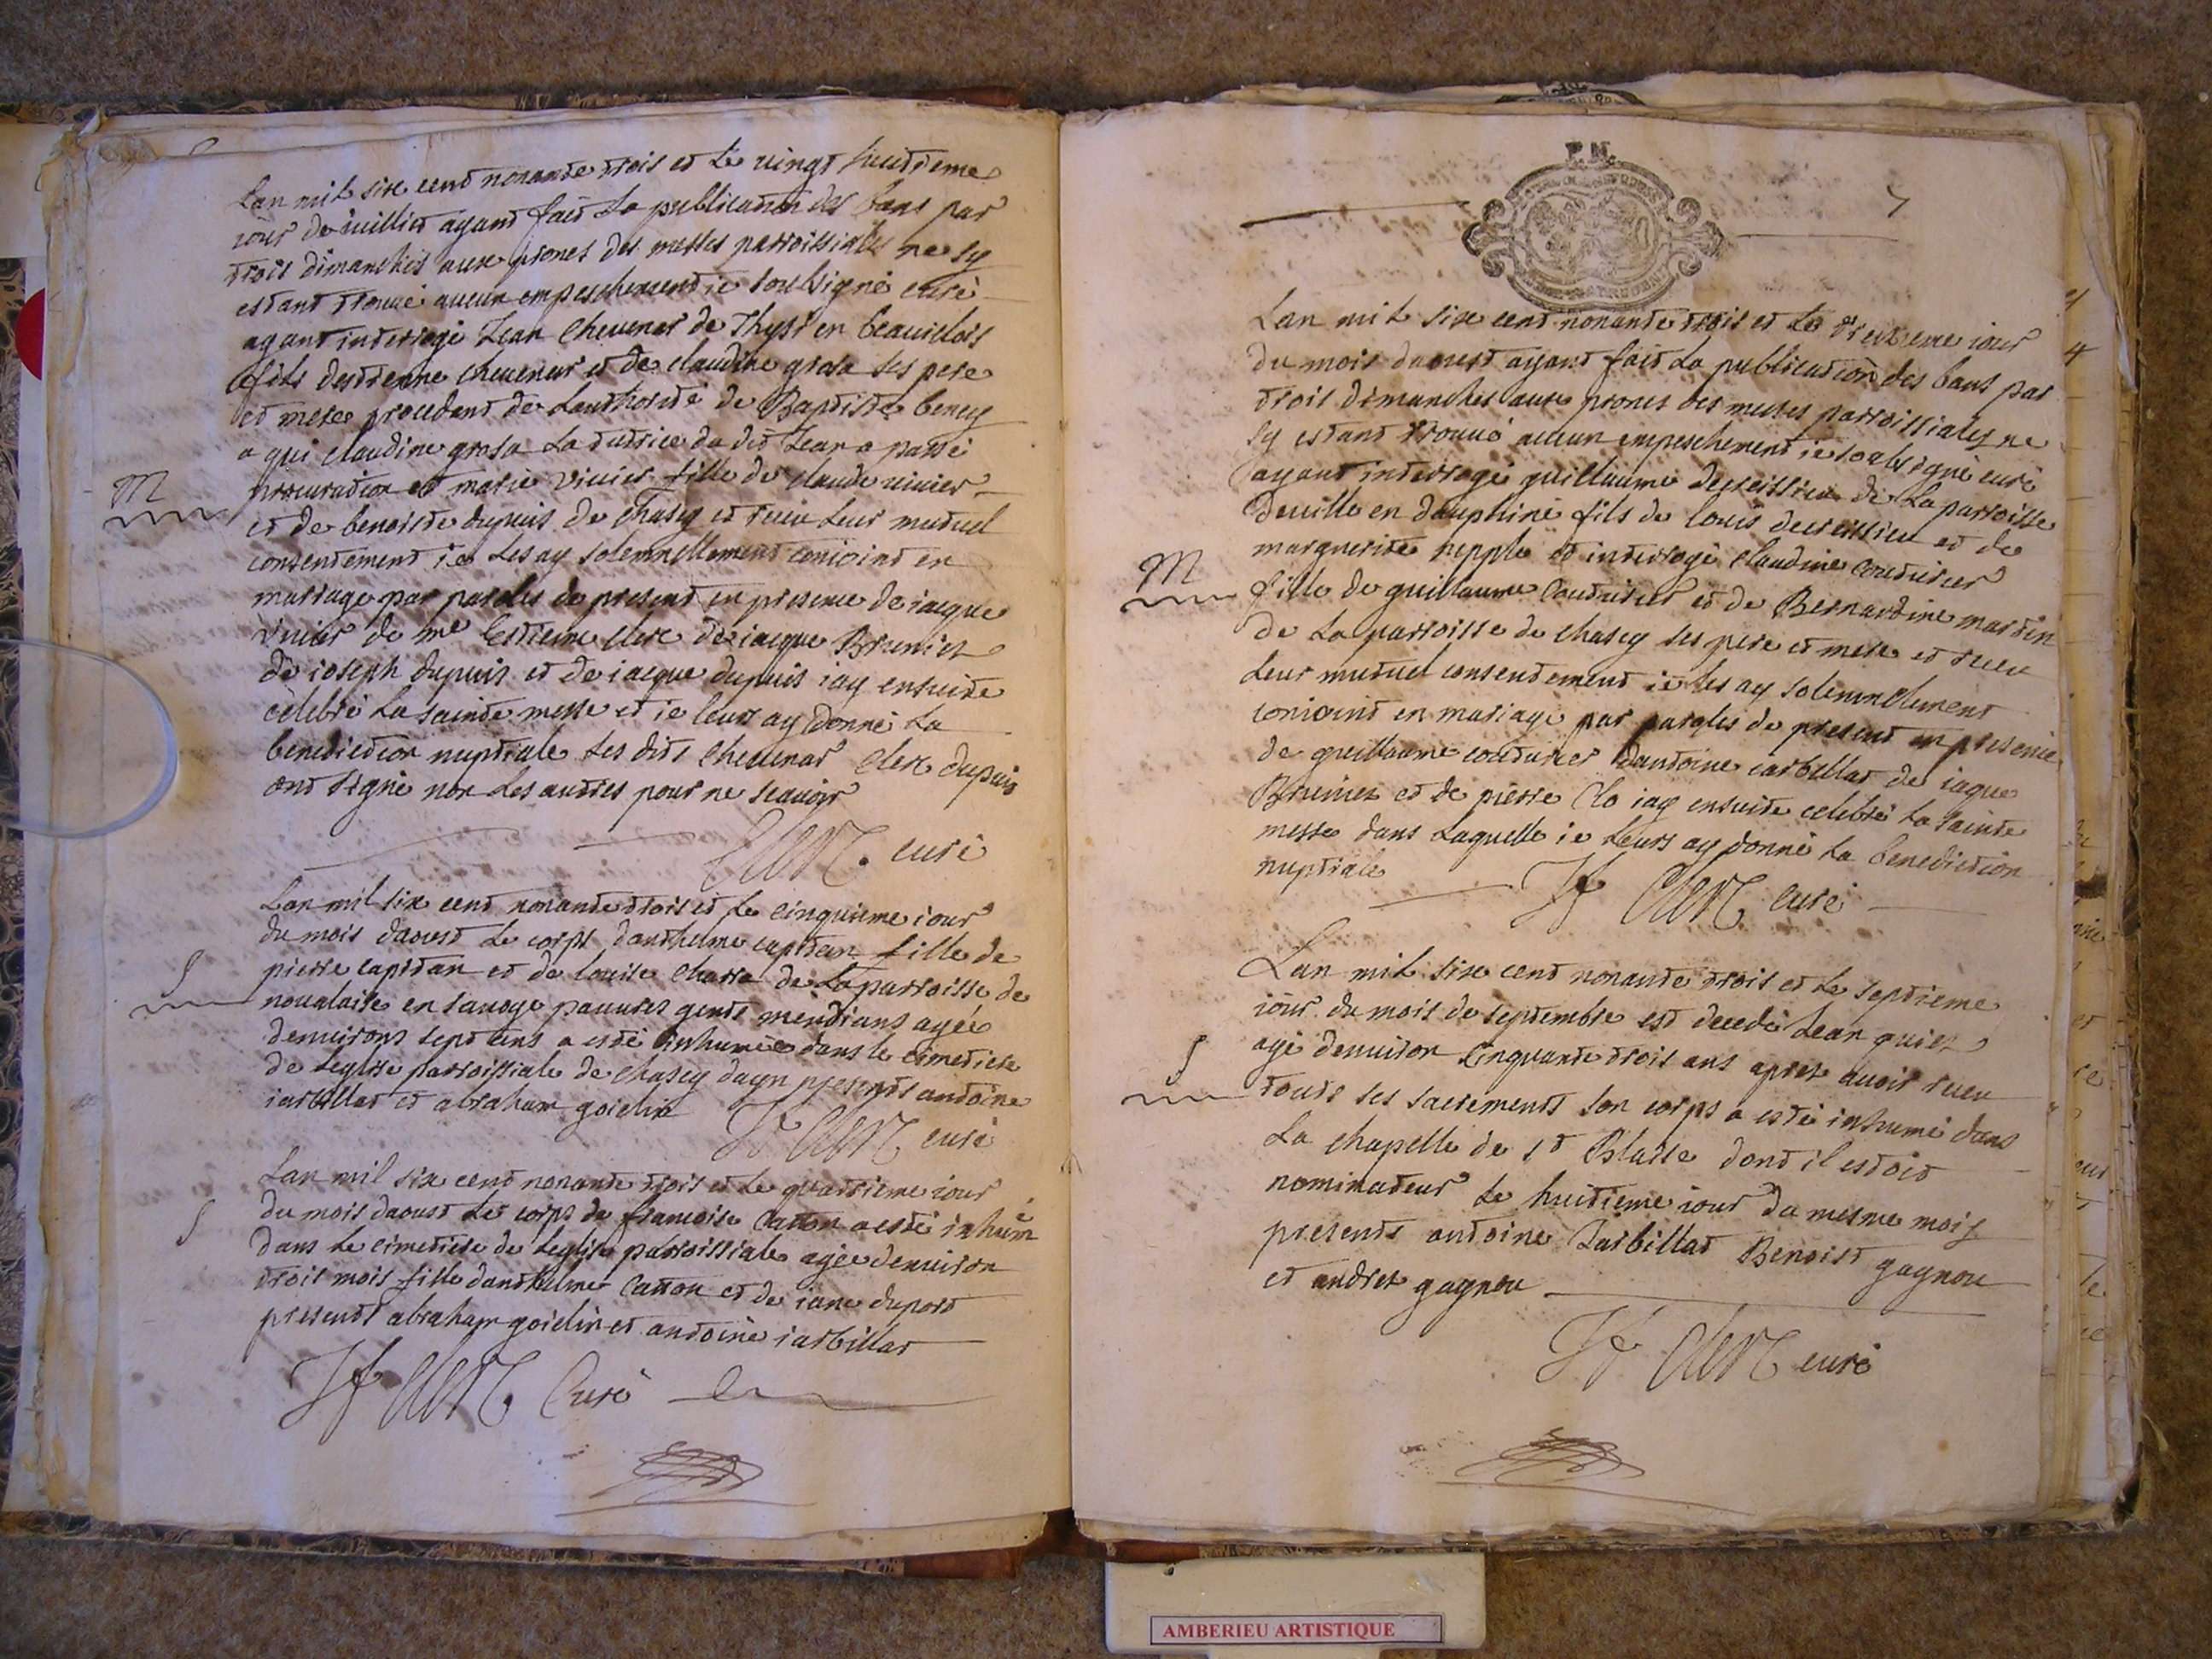 Lan mil six cent nonante trois et le vingt huitieme
iour de iuillet ayant fait la publication des bans par
trois dimanches aux prones des messes parroissiales ne sy
estant trouvé aucun empeschement ie soubsigné curé
ayant interrogé Jean Chevenat de Thysi en beauiolois
fils destienne chevenat et de claudine grosa ses pere
et mere procedant de lauthorité de Baptiste bency
a qui claudine grosa la tutrice du dit Jean a passé
M
procuration et marie vivier fille de claude vivier
et de benoiste dupuis de chasey et receu leur mutuel
consentement ie les ay solemnellement conioint en
mariage par paroles de present en presence de iacque
vivier de me Estienne clerc de iacque Bruniet
de ioseph dupuis et de iacque dupuis iay ensuite
celebré la sainte messe et ie leurs ay donné la
benediction nuptiale les dits chevenat clerc dupuis
ont signé non les autres pour ne scavoir
Clerc. curé
Lan mil six cent nonante trois et le cinquieme iour
du mois daoust le corps danthelme capitan fille de
S
pierre capitan et de louise charra de la parroisse de
novalaise en savoye pauvres gents mendians agée
denvirons sept ans a esté inhumée dans le cimetiere
de leglise parroissiale de chasey dayn presents antoine
iarbillat et abraham goielin
Clerc curé
Lan mil six cent nonante trois et le quatrieme iour
S
du mois daoust le corps de francoise Catton a esté inhumé
dans le cimetiere de leglise parroissiale agée denviron
trois mois fille danthelme Catton et de iane duport
presents abraham goielin et antoine iarbillat
Clerc Curé
P.N.
7
Lan mil six cent nonante trois et le treizieme iour
du mois daoust ayant fait la publication des bans par
trois dimanches aux prones des messes parroissiales ne
sy estant trouvé aucun empeschement ie soubsigné curé
ayant interrogé guillaume decreissieu de la parroisse
deville en dauphiné fils de louis decreissieu et de
M
marguerite repple et interrogé claudine couturier
fille de guillaume Couturier et de Bernardine martin
de la parroisse de chasey ses pere et mere et receu
leur mutuel consentement ie les ay solemnellement
conioint en mariage par paroles de present en presence
de guillaume couturier dantoine iarbillat de iaque
Bruniet et de pierre Clo iay ensuite celebré la sainte
messe dans laquelle ie leurs ay donné la benediction
nuptiale
Clerc curé
Lan mil six cent nonante trois et le septieme
iour du mois de septembre est decedé Jean quiet
S
agé denviron cinquante trois ans apres avoir receu
touts ses sacrements son corps a esté inhumé dans
la chapelle de st Blaise dont il estoit
nominateur le huitieme iour du mesme mois
presents antoine Jarbillat Benoist gagnou
et andret gagnou
Clerc curé
AMBERIEU ARTISTIQUE